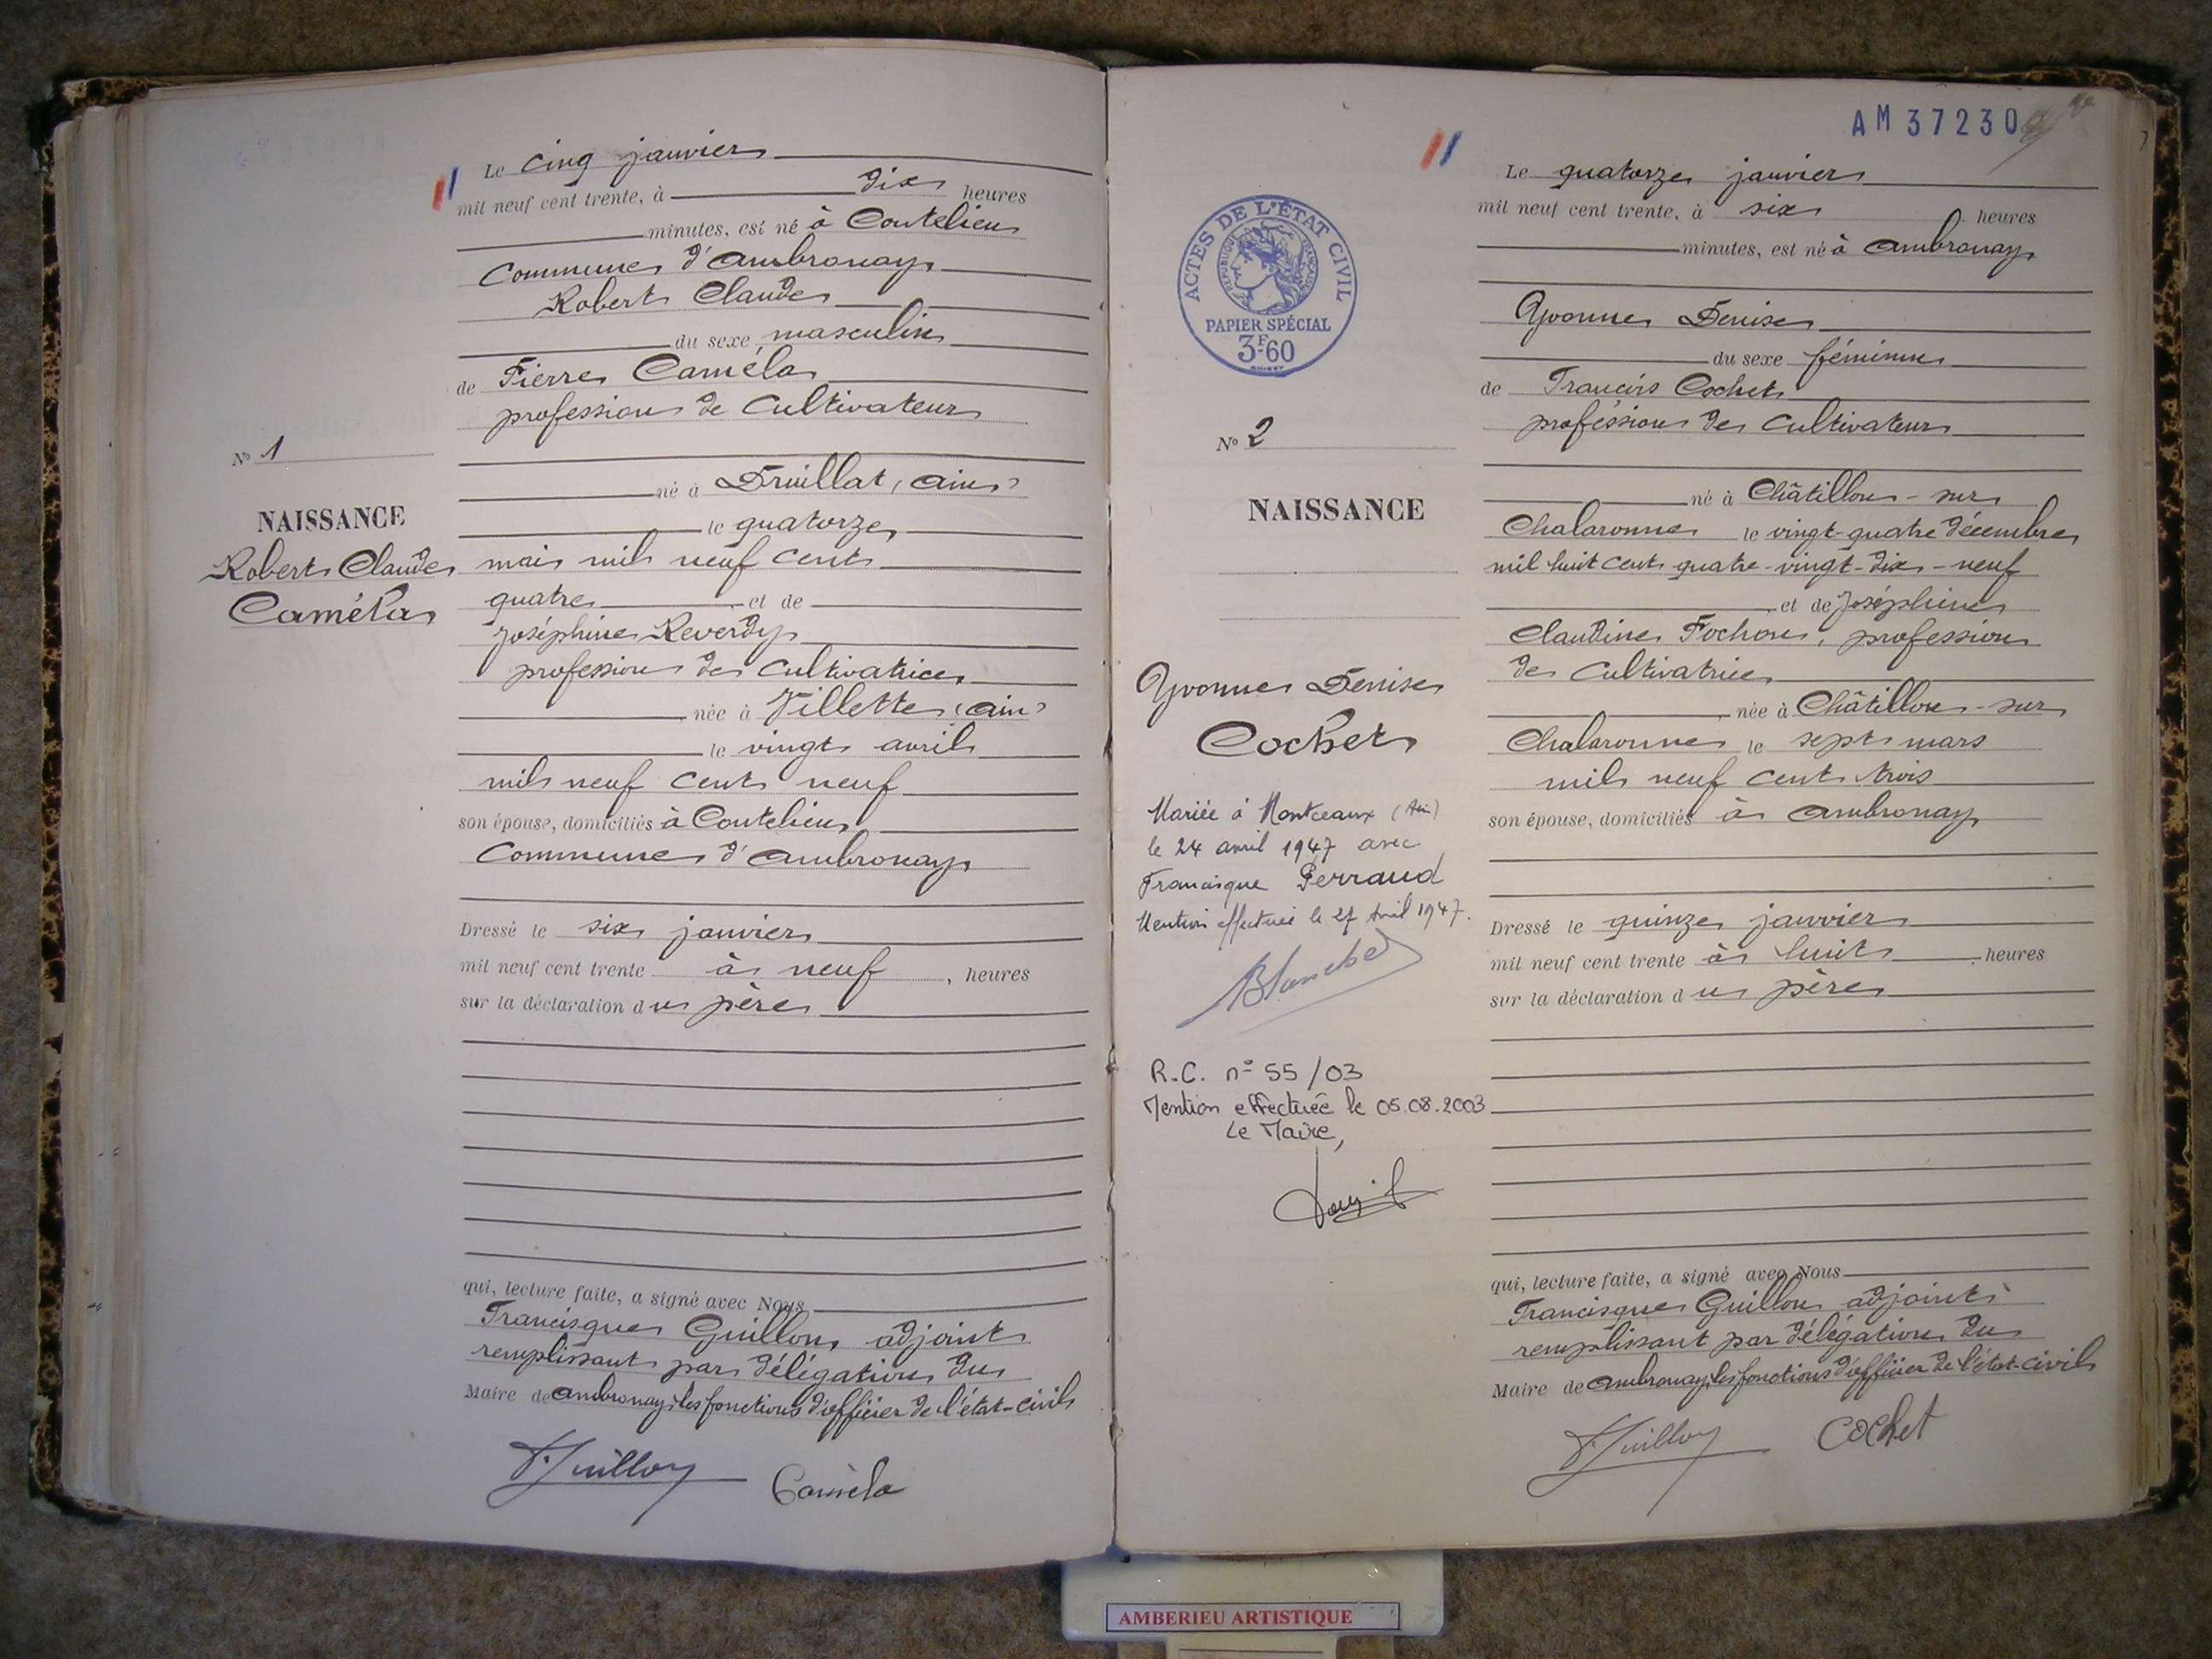 Le cinq janvier
mil neuf cent trente, à dix heures
minutes, est né à Coutelieu
Commune d'Ambronay
Robert Claude
du sexe masculin
de Pierre Caméla
profession de Cultivateur
né à Druillat (Ain)
le quatorze
mai mil neuf cent
quatre et de
Joséphine Reverdy
profession de Cultivatrice
née à Villette (Ain)
le vingt avril
mil neuf cent neuf
son épouse, domiciliés à Coutelieu
Commune d'Ambronay
Dressé le six janvier
mil neuf cent trente à neuf, heures
sur la déclaration du père
qui, lecture faite, a signé avec Nous
Francisque Guillon, adjoint
remplissant par délégation du
Maire de Ambronay, les fonctions d'officier de l'état-civil
F. Guillon
Caméla
N° 1
NAISSANCE
Robert Claude
Caméla
AM 37230
ACTES DE L'ÉTAT CIVIL
RÉPUBLIQUE FRANÇAISE
PAPIER SPÉCIAL
3F60
N° 2
NAISSANCE
Yvonne Denise
Cochet
Mariée à Montceaux (Ain)
le 24 avril 1947 avec
Francisque Perraud
Mention effectuée le 27 Avril 1947.
R.C. n° 55/03
Mention effectuée le 05.08.2003
Le Maire,
Le quatorze janvier
mil neuf cent trente, à six heures
minutes, est né à Ambronay
Yvonne Denise
du sexe féminin
de Francis Cochet
profession de Cultivateur
né à Châtillon-sur
Chalaronne le vingt-quatre décembre
mil huit cent quatre-vingt-dix-neuf
et de Joséphine
Claudine Fochon, profession
de Cultivatrice
née à Châtillon-sur
Chalaronne le sept mars
mil neuf cent trois
son épouse, domiciliés à Ambronay
Dressé le quinze janvier
mil neuf cent trente à huit heures
sur la déclaration du père
qui, lecture faite, a signé avec Nous
Francisque Guillon adjoint
remplissant par délégation du
Maire de Ambronay, les fonctions d'officier de l'état-civil
F. Guillon
Cochet
AMBERIEU ARTISTIQUE